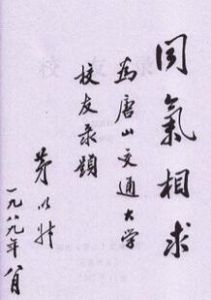 同氣相求
為唐山交通大学
校友录題
茅以升
一九八九年八月